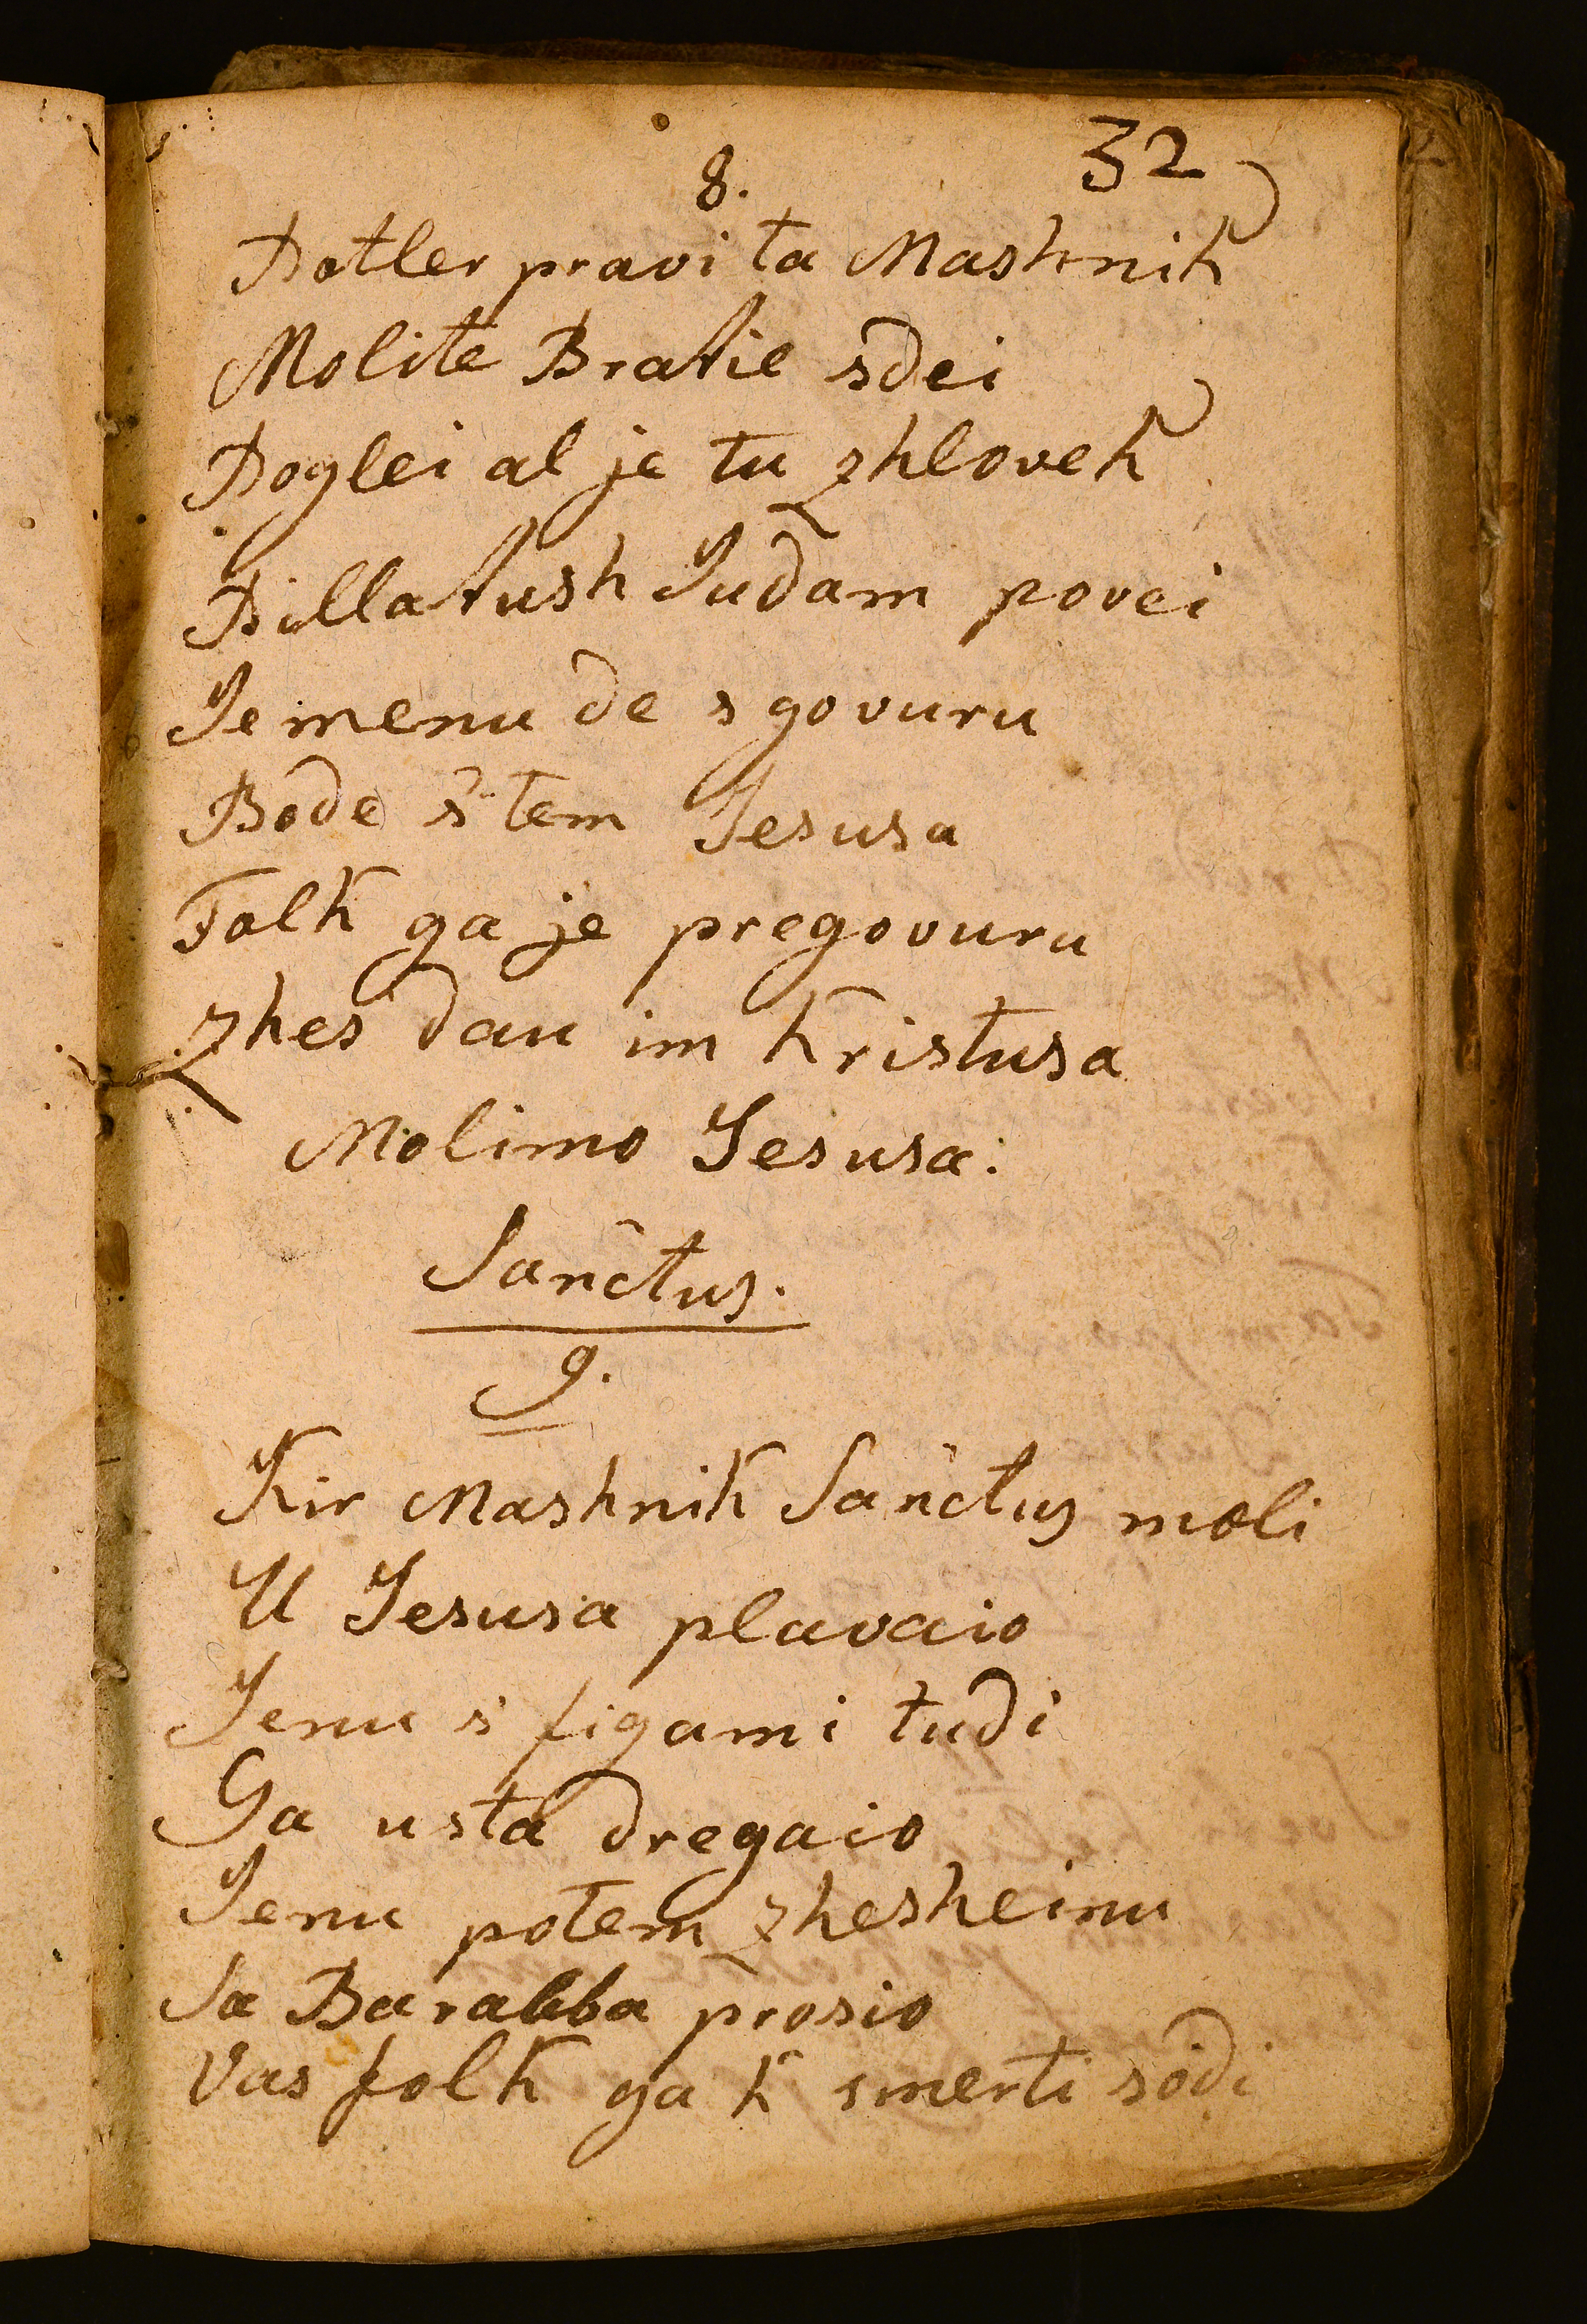 32
8.
Potler pravi ta Mashnik
Molite Bratie sdei
Poglei al je tu zhlovek
Pillatush Judam povei
Je menu de s govuru
Bode s' tem Jesusa
Folk ga je pregovuru
Zhes dau im Kristusa
Molimo Jesusa.
Sanctus.
9.
Kir Mashnik Sanctus moli
U Jesusa plavaio
Jenu s' figami tudi
Ga usta dregaio
Jenu potem zhesheinu
Sa Barabba prosio
Vas folk ga k smerti sodi